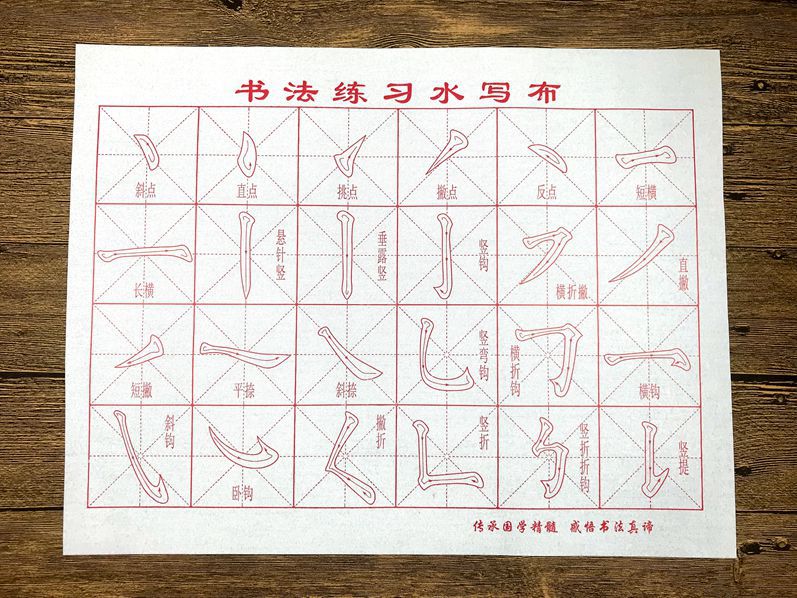 书法练习水写布
斜点
直点
挑点
撇点
反点
短横
长横
悬针竖
垂露竖
竖钩
横折撇
直撇
短撇
平捺
斜捺
竖弯钩
横折钩
横钩
斜钩
卧钩
撇折
竖折
竖折折钩
竖提
传承国学精髓 感悟书法真谛